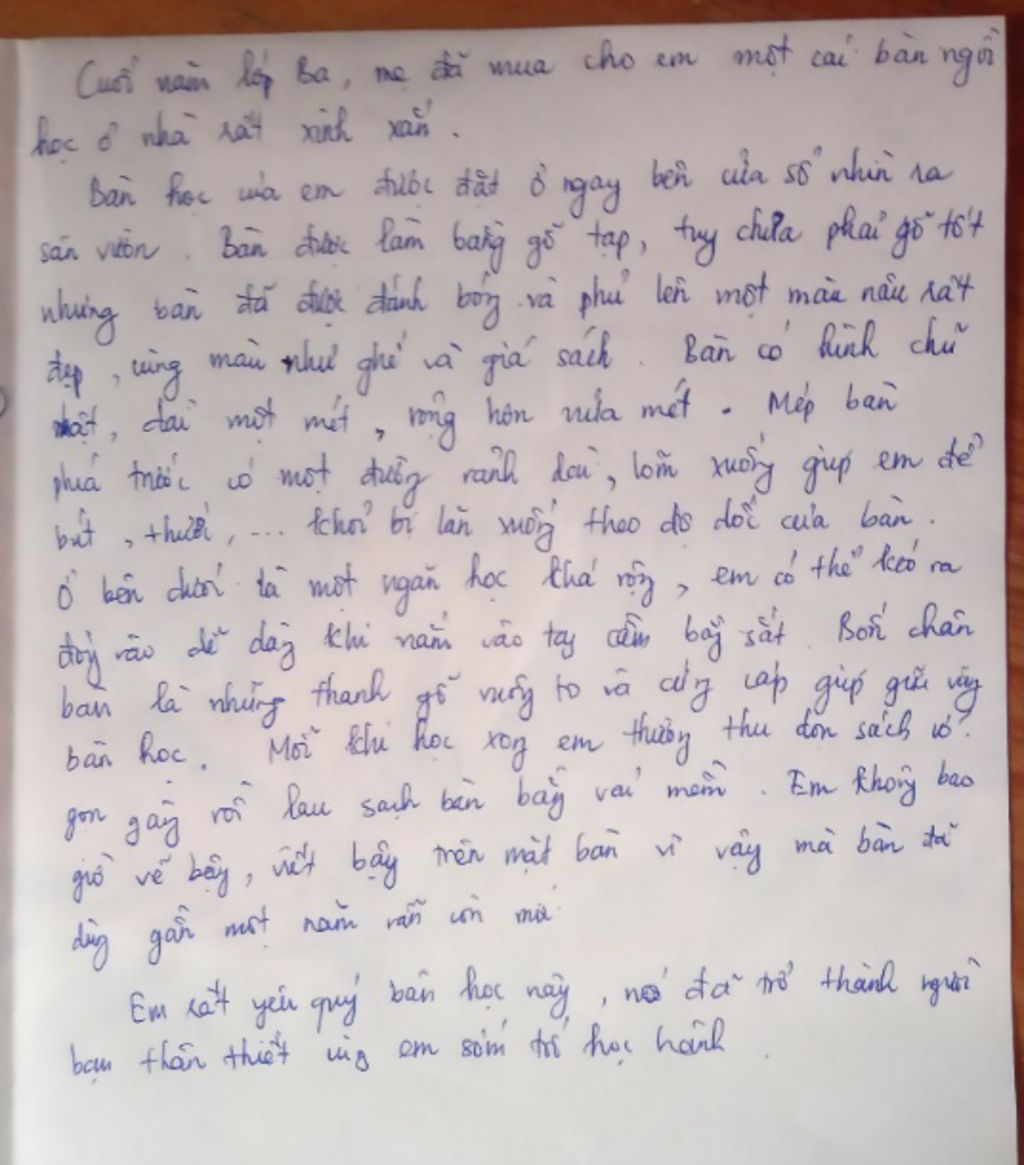 Cuối năm lớp Ba, mẹ đã mua cho em một cái bàn ngồi
học ở nhà rất xinh xắn.
Bàn học của em được đặt ở ngay bên cửa sổ nhìn ra
sân vườn. Bàn được làm bằng gỗ tạp, tuy chưa phải gỗ tốt
nhưng bàn đã được đánh bóng và phủ lên một màu nâu rất
đẹp, cùng màu như ghế và giá sách. Bàn có hình chữ
nhật, dài một mét, rộng hơn nửa mét. Mép bàn
phía trước có một đường rãnh dài, lõm xuống giúp em để
bút, thước, ... khỏi bị lăn xuống theo độ dốc của bàn.
Ở bên dưới là một ngăn học khá rộng, em có thể kéo ra
đẩy vào dễ dàng khi nắm vào tay cầm bằng sắt. Bốn chân
bàn là những thanh gỗ vuông to và cứng cáp giúp giữ vững
bàn học. Mỗi khi học xong em thường thu dọn sách vở
gọn gàng rồi lau sạch bàn bằng vải mềm. Em không bao
giờ vẽ bậy, viết bậy trên mặt bàn vì vậy mà bàn đã
dùng gần một năm vẫn còn mới.
Em rất yêu quý bàn học này, nó đã trở thành người
bạn thân thiết cùng em sớm tối học hành.